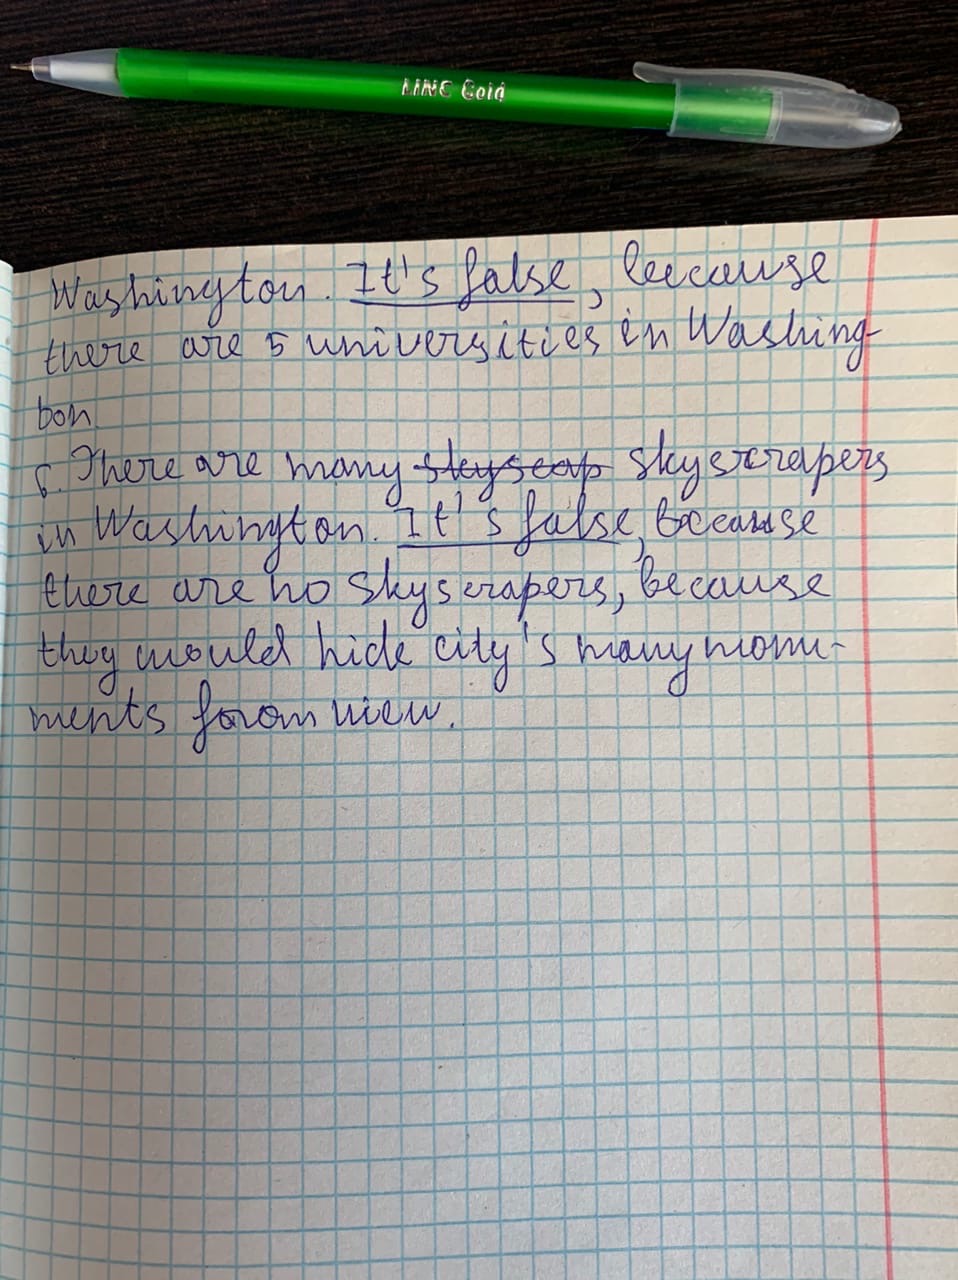 LINC Gold
Washington. It's false, because
there are 5 universities in Washing-
ton.
6. There are many skyscrap skyscrapers
in Washington. It's false, because
there are no skyscrapers, because
they would hide city's many monu-
ments from view.